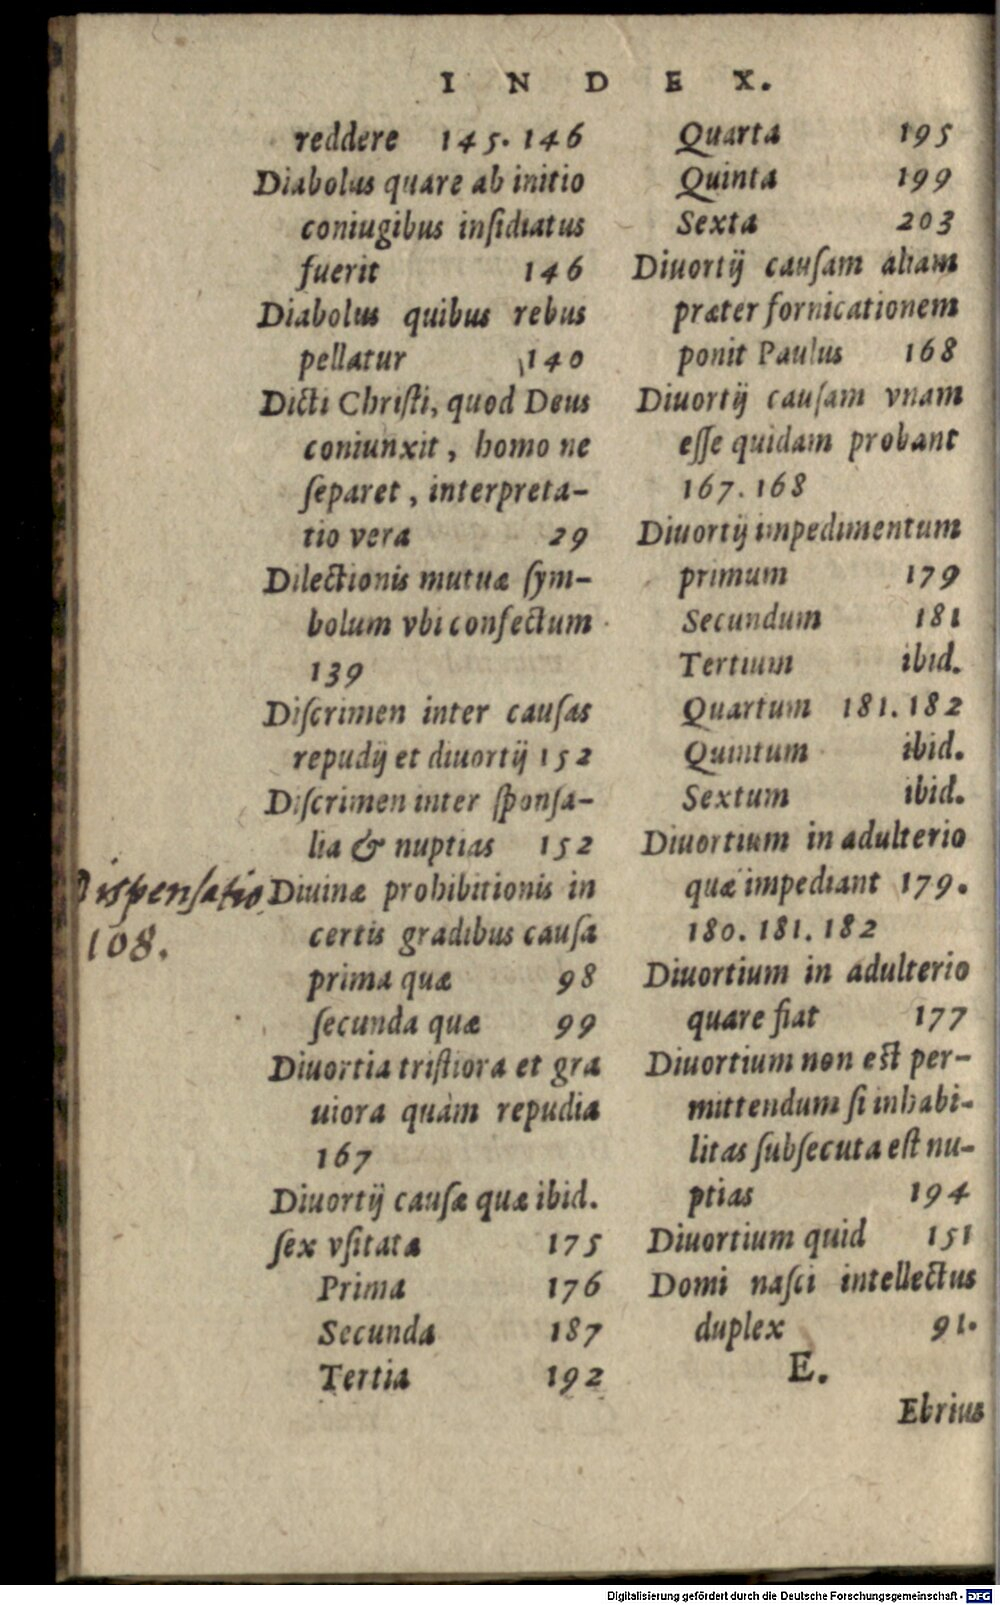 INDEX.
reddere 145. 146
Diabolus quare ab initio
coniugibus inſidiatus
fuerit 146
Diabolus quibus rebus
pellatur 140
Dicti Chriſti, quod Deus
coniunxit, homo ne
ſeparet, interpreta-
tio vera 29
Dilectionis mutuæ ſym-
bolum vbi confectum
139
Diſcrimen inter cauſas
repudij et diuortij 152
Diſcrimen inter ſponſa-
lia & nuptias 152
Dispenſatio
108.
Diuinæ prohibitionis in
certis gradibus cauſa
prima quæ 98
ſecunda quæ 99
Diuortia triſtiora et gra
uiora quàm repudia
167
Diuortij cauſæ quæ ibid.
ſex vſitata 175
Prima 176
Secunda 187
Tertia 192
Quarta 195
Quinta 199
Sexta 203
Diuortij cauſam aliam
præter fornicationem
ponit Paulus 168
Diuortij cauſam vnam
eſſe quidam probant
167. 168
Diuortij impedimentum
primum 179
Secundum 181
Tertium ibid.
Quartum 181. 182
Quintum ibid.
Sextum ibid.
Diuortium in adulterio
quæ impediant 179.
180. 181. 182
Diuortium in adulterio
quare fiat 177
Diuortium non est per-
mittendum ſi inhabi-
litas ſubſecuta eſt nu-
ptias 194
Diuortium quid 151
Domi naſci intellectus
duplex 91.
E.
Ebrius
Digitalisierung gefördert durch die Deutsche Forschungsgemeinschaft - DFG